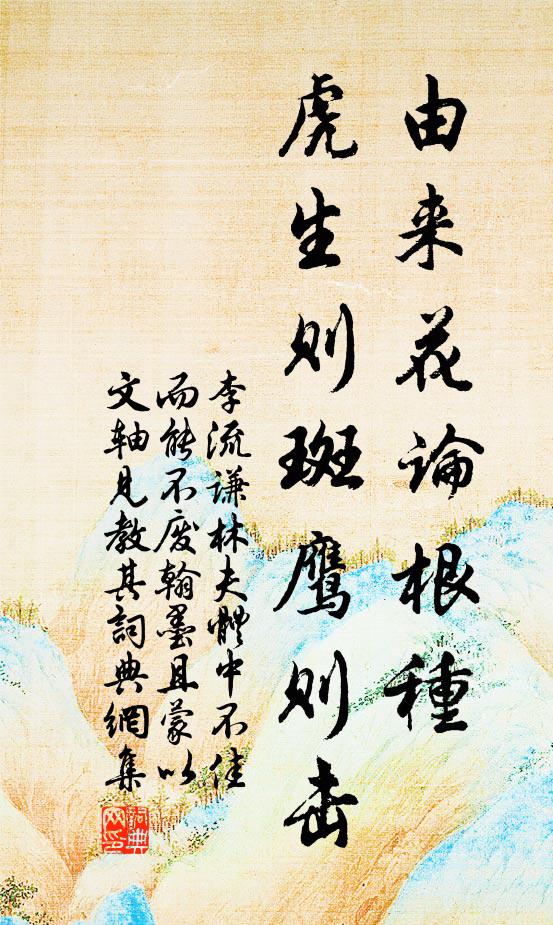 由来花論根種
虎生则斑鹰则击
李流谦林夫體中不佳
而能不废翰墨且蒙以
文轴见教其詞典網集
詞典
网印